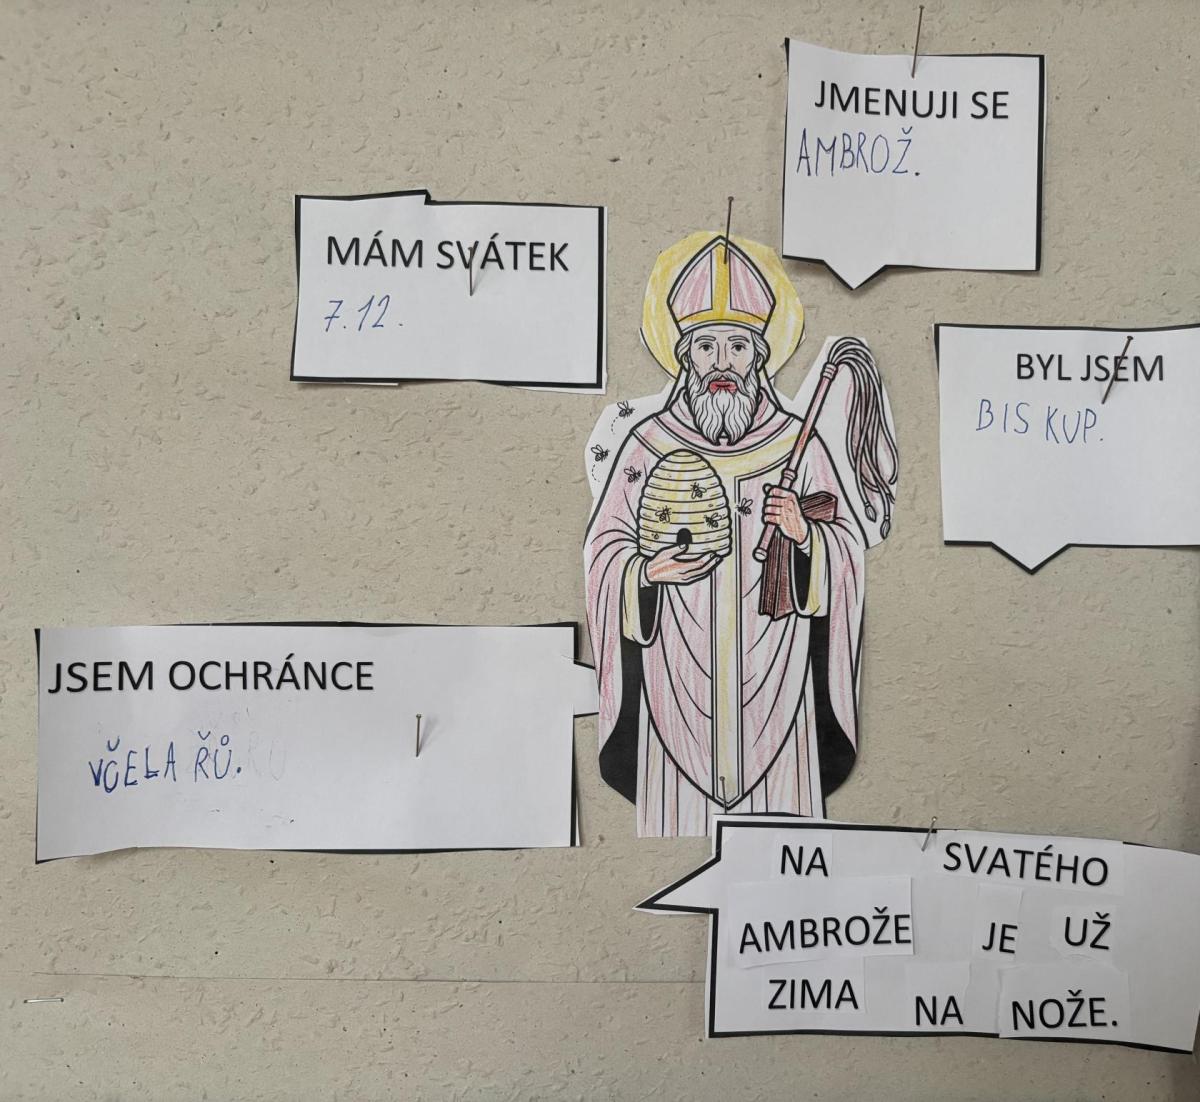 JMENUJI SE
AMBROŽ.
MÁM SVÁTEK
7.12.
BYL JSEM
BISKUP.
JSEM OCHRÁNCE
VČELAŘŮ.
NA SVATÉHO
AMBROŽE JE UŽ
ZIMA NA NOŽE.